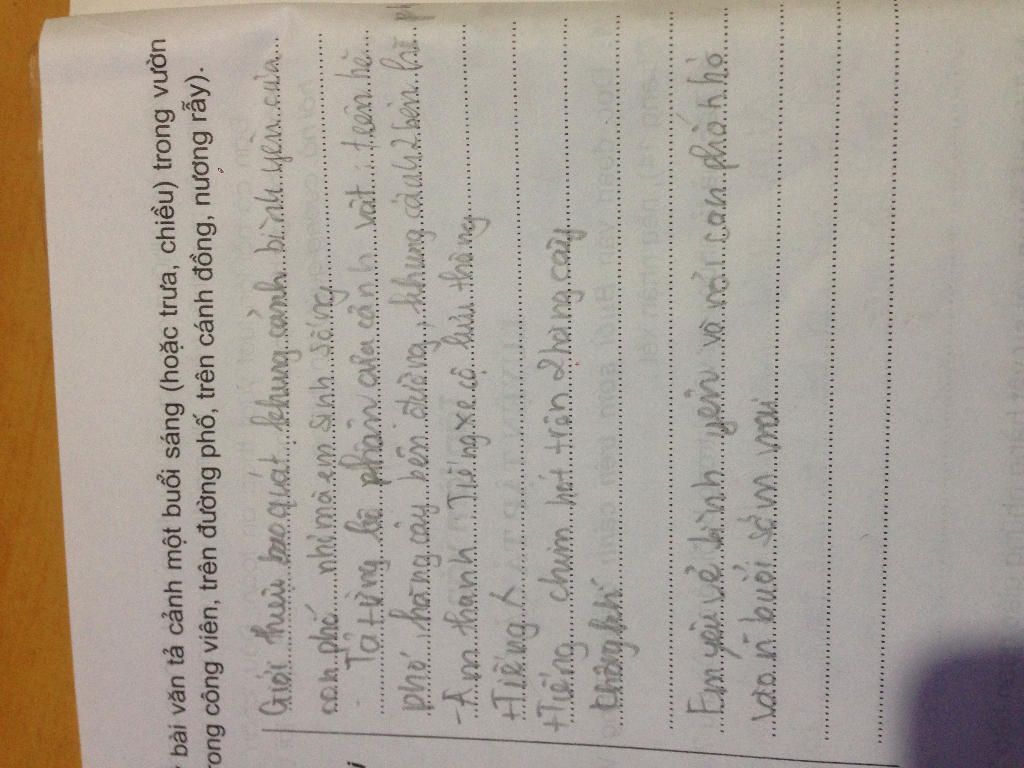 bài văn tả cảnh một buổi sáng (hoặc trưa, chiều) trong vườn
rong công viên, trên đường phố, trên cánh đồng, nương rẫy).
Giới thiệu bao quát khung cảnh bình yên của
con phố nhỉ mà em sinh sống
- Tả từng bộ phận của cảnh vật: trên hè
phố, hàng cây bên đường, khung cảnh 2 bên hè ph
- Âm thanh Tiếng xe cộ lưu thông
+ Tiếng
+ Tiếng chim hót trên 2 hàng cây
Em yêu vẻ bình yên vô với con phố nhỏ
vào buổi sớm mai